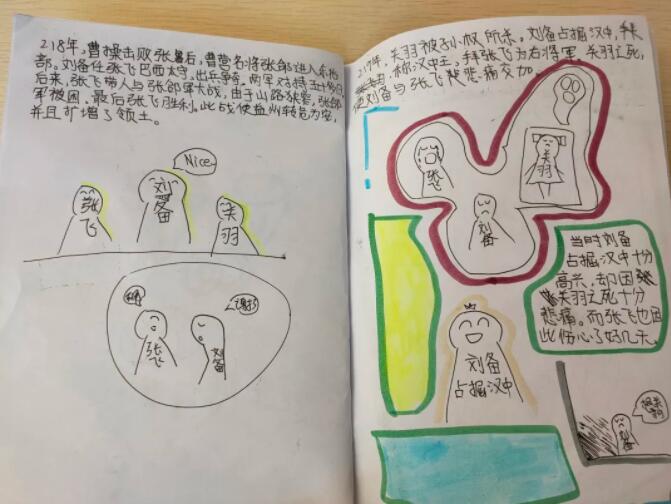 218年，曹操击败张鲁后，曹营名将张郃进入巴西
部。刘备任张飞巴西太守，出兵争夺。两军对持五十多日
后来，张飞带人与张郃军大战，由于山路狭窄，张郃
军被困。最后张飞胜利。此战使益州转危为安，
并且扩增了领土。
Nice~
张飞
刘备
关羽
张飞
刘备
219年，关羽被孙权所杀，刘备占据汉中，
称汉中王，拜张飞为右将军。关羽之死，
使刘备与张飞悲痛交加。
关羽
刘备
当时刘备
占据汉中十分
高兴，却因
关羽之死十分
悲痛。而张飞也因
此伤心了好几天。
刘备
占据汉中
刘备